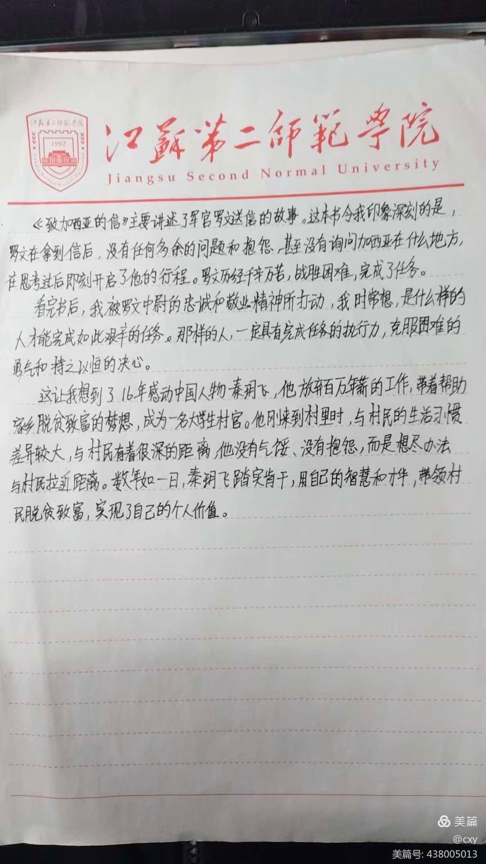 江苏第二师范学院
1952
江蘇第二師範學院
Jiangsu Second Normal University
《致加西亚的信》主要讲述了军官罗文送信的故事。这本书令我印象深刻的是,
罗文在拿到信后,没有任何多余的问题和抱怨,甚至没有询问加西亚在什么地方,
在思考过后即刻开启了他的行程。罗文历经千辛万苦,战胜困难,完成了任务。
看完书后,我被罗文中尉的忠诚和敬业精神所打动,我时常想,是什么样的
人才能完成如此艰辛的任务。那样的人,一定具有完成任务的执行力,克服困难的
勇气和持之以恒的决心。
这让我想到了16年感动中国人物-秦玥飞,他放弃百万年薪的工作,带着帮助
家乡脱贫致富的梦想,成为一名大学生村官。他刚来到村里时,与村民的生活习惯
差异较大,与村民有着很深的距离,他没有气馁、没有抱怨,而是想尽办法
与村民拉近距离。数年如一日,秦玥飞踏实肯干,用自己的智慧和才华,带领村
民脱贫致富,实现了自己的个人价值。
美篇
@cxy
美篇号: 438005013